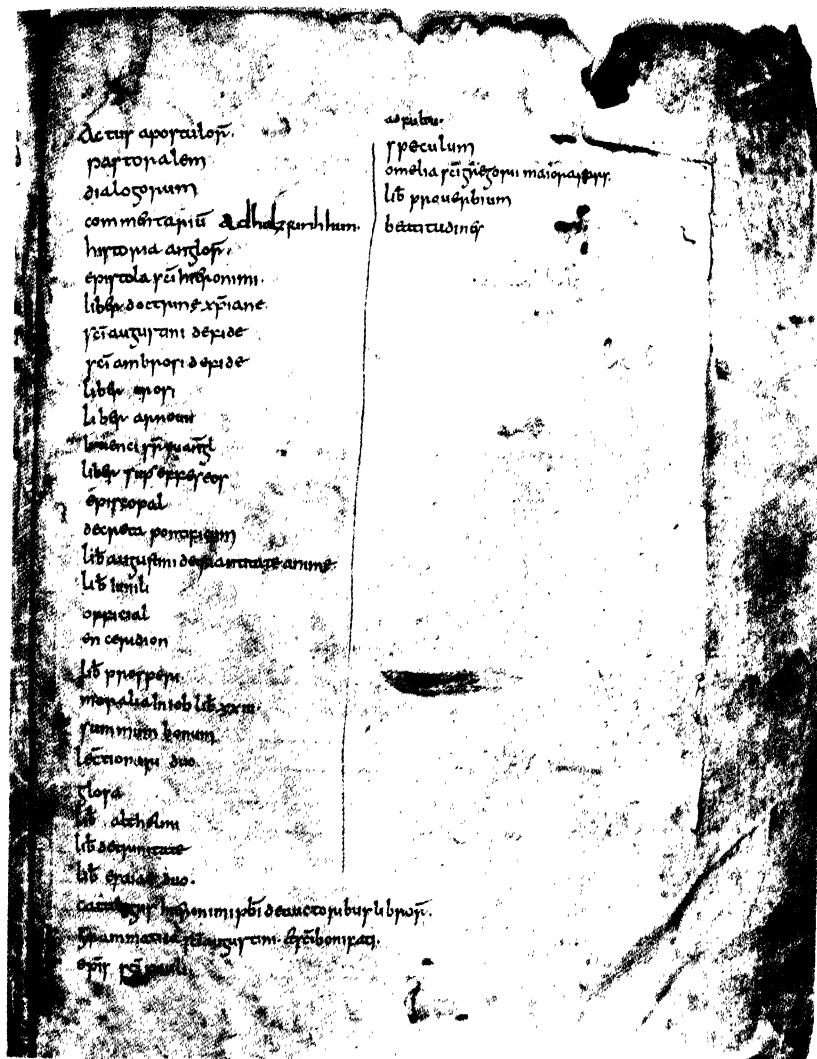 Actus apostuloꝝ.
pastoralem
dialogorum
commentariū Ad holzsinhhun.
historia angloꝝ.
epistola sc̄i hieronimi.
liber doctrine xp̄iane.
sc̄i augustini de fide
sc̄i ambrosi de fide
liber
liber
liber sup
episcopal
decreta pontificum
lib̄ augustini de quantitate anime
lib̄
official
enceridion
lib̄ prosperi.
moralia in iob lib̄ xxiii.
summum bonum
lectionarii duo.
glosa
lib̄ althelmi
lib̄ de trinitate
lib̄ esaiae duo.
catalogus hieronimi p̄b̄i de auctoribus libroꝝ.
grammatica sc̄i augustini & sc̄i bonifati.
epis̄ sc̄i pauli
ad fultu.
speculum
omelia sc̄i gregorii maiora pars.
lib̄ prouerbium
beatitudines